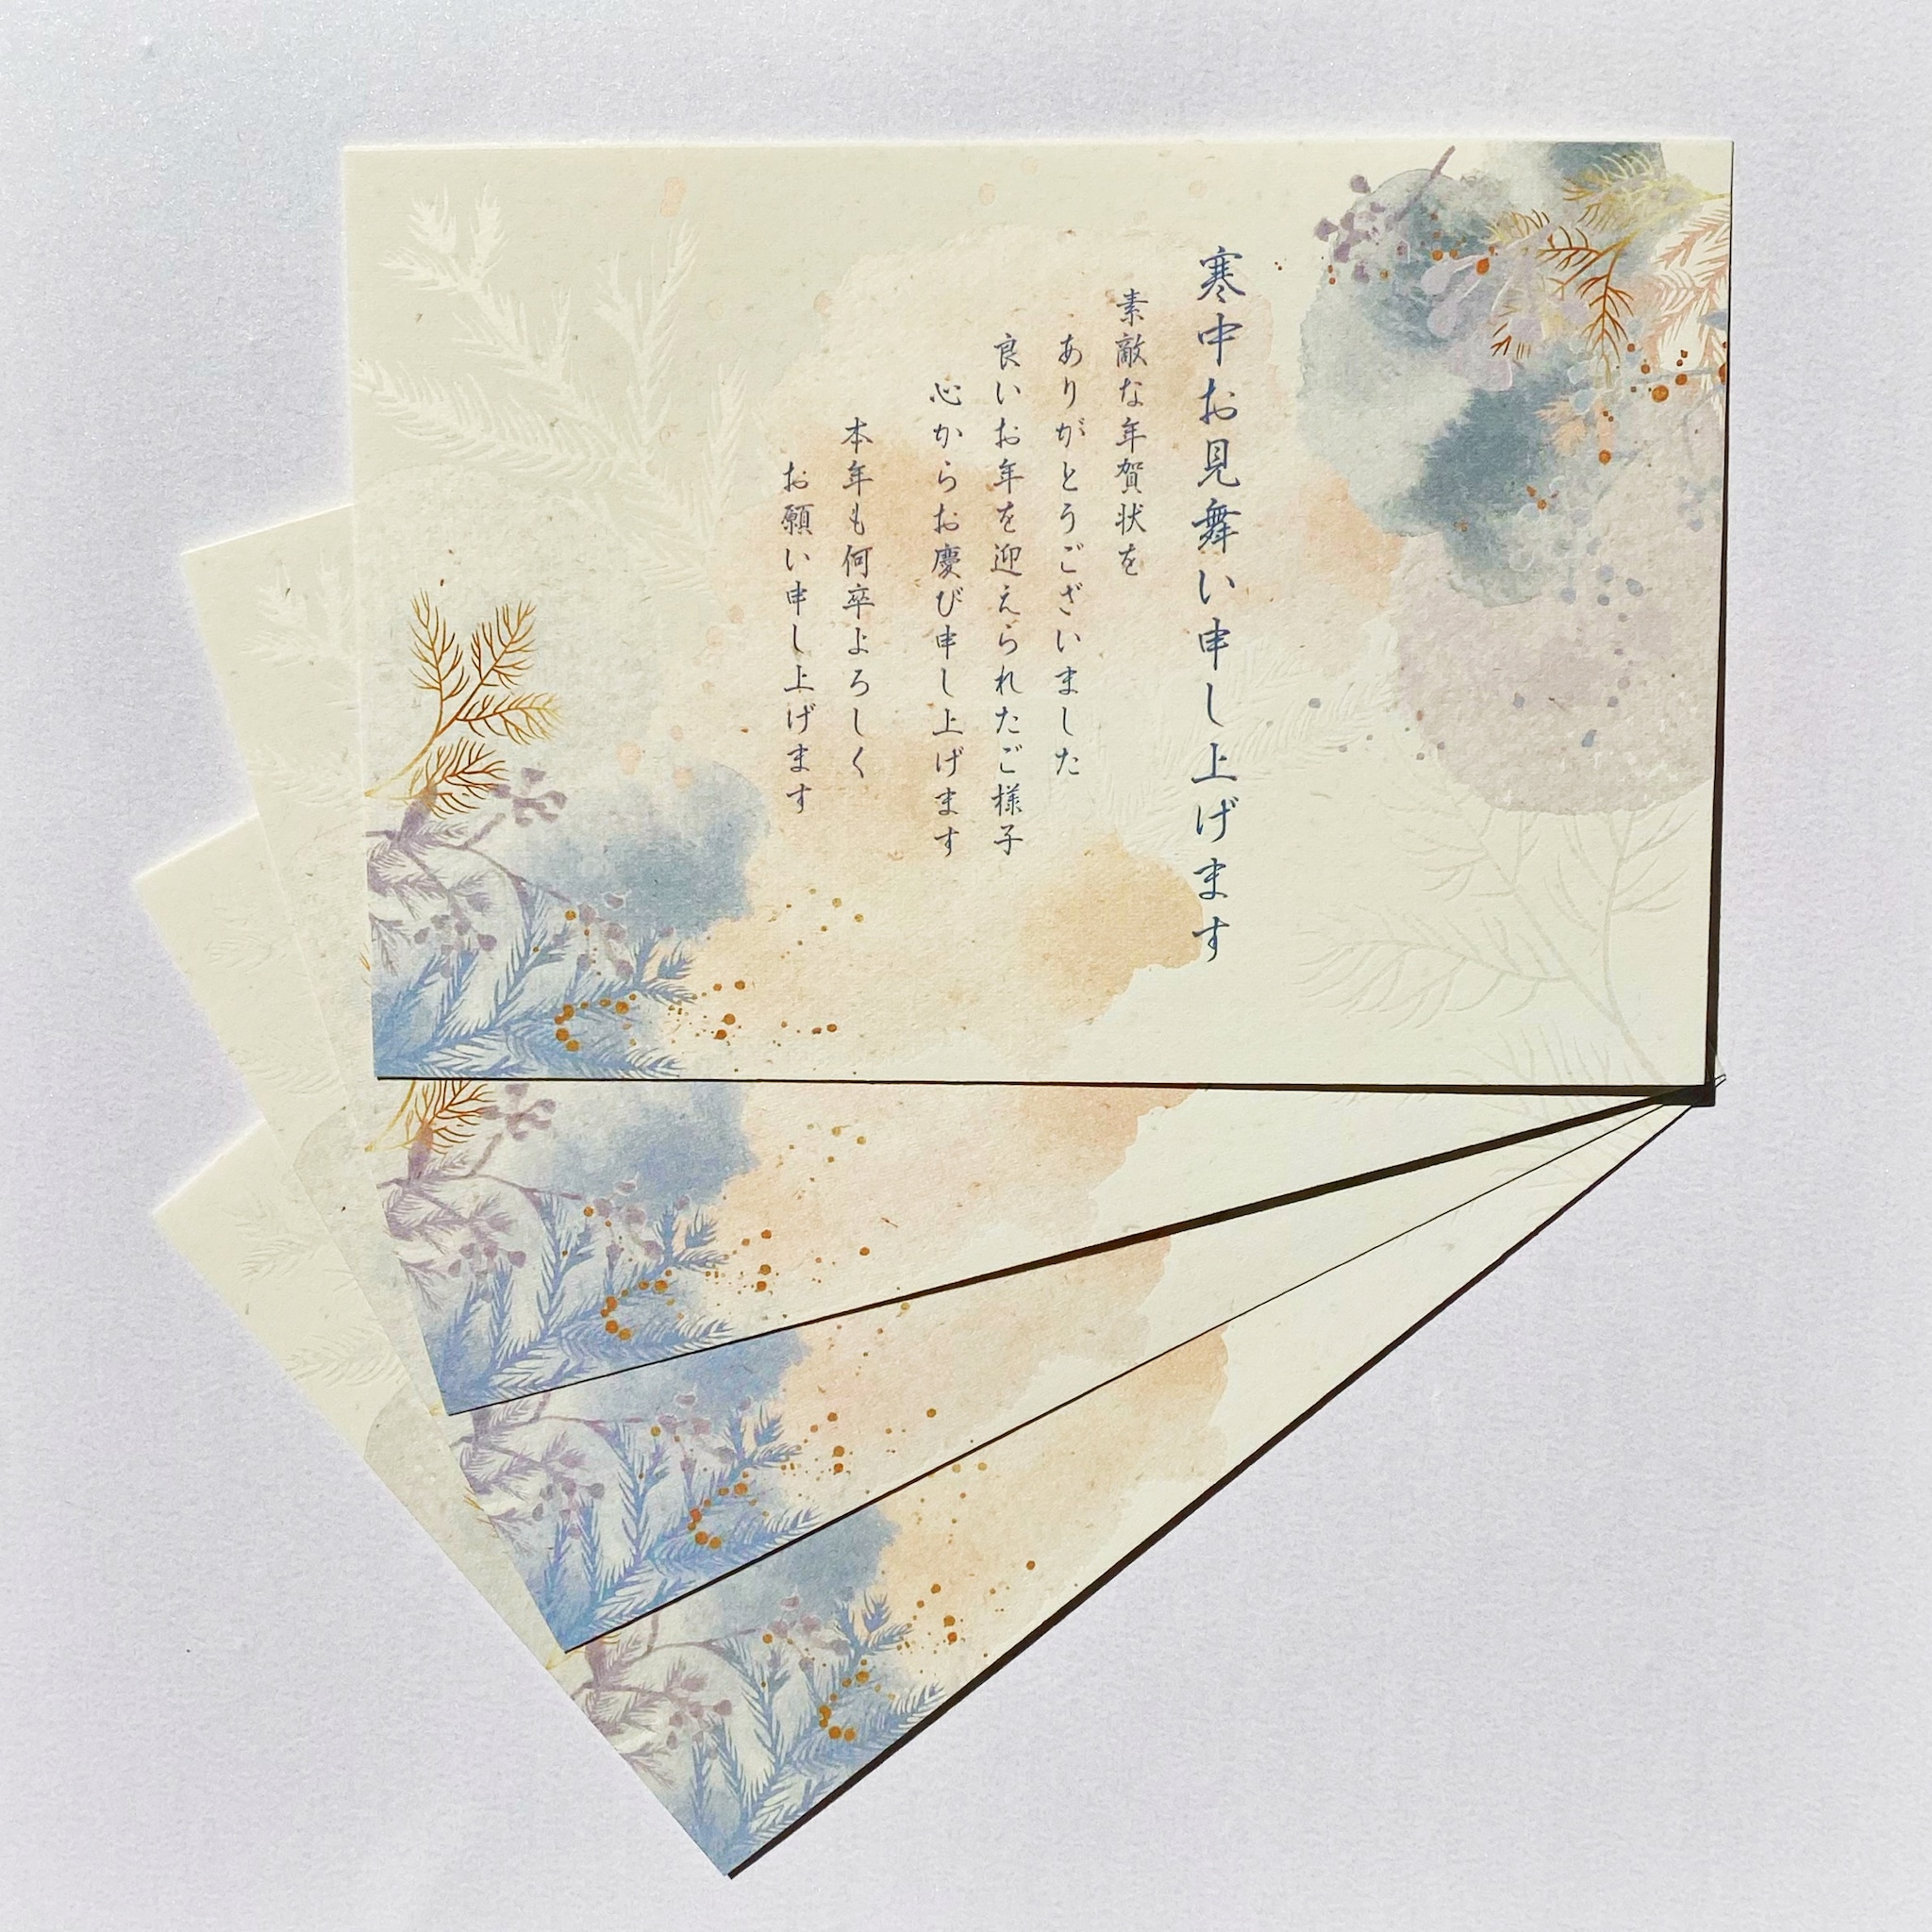 寒中お見舞い申し上げます
素敵な年賀状を
ありがとうございました
良いお年を迎えられたご様子
心からお慶び申し上げます
本年も何卒よろしく
お願い申し上げます